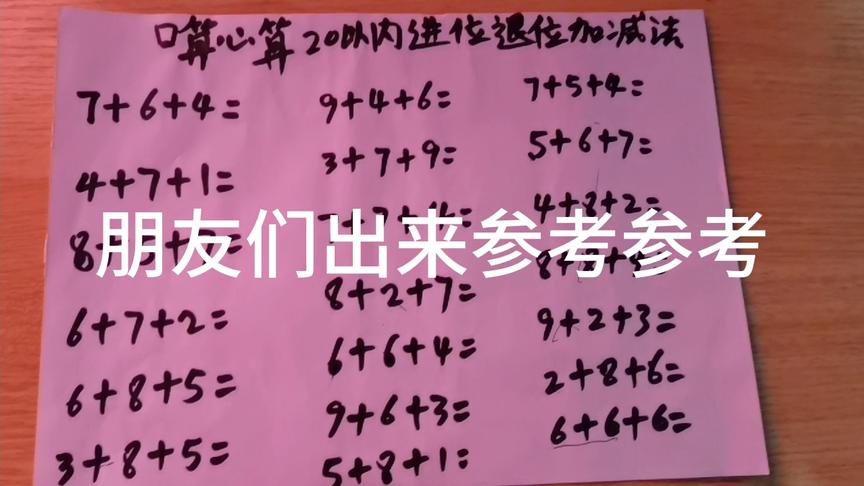 口算心算20以内进位退位加减法
7+6+4=
4+7+1=
6+7+2=
6+8+5=
3+8+5=
9+4+6=
3+7+9=
8+2+7=
6+6+4=
9+6+3=
5+8+1=
7+5+4=
5+6+7=
4+8+2=
9+2+3=
2+8+6=
6+6+6=
朋友们出来参考参考